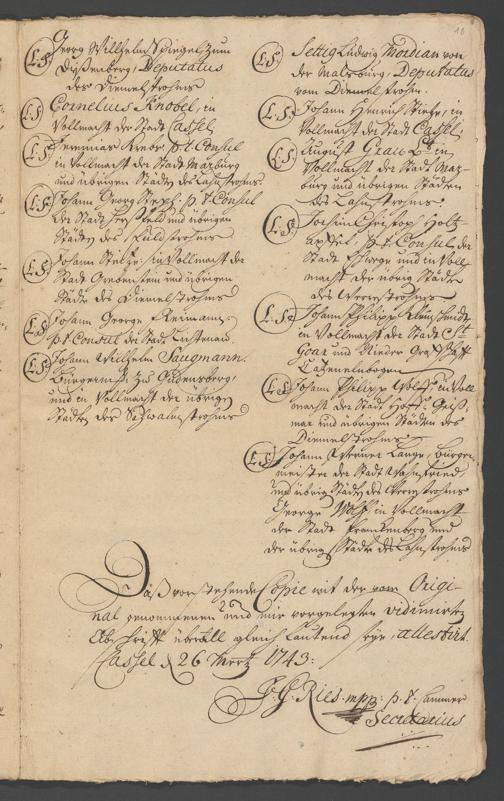 10
(L.S) Georg Willhelm Spiegel zum
Dißenberg, Deputatus
des Diemelstrohms
(L.S) Cornelius Knobel, in
Vollmacht der Stadt Cassel
(L.S) Hieremias Krebs p.t. Consul
in Vollmacht der Stadt Marburg
und übrigen Städte des Lahnstrohms
(L.S) Johann Georg p.t. Consul
der Stadt Hersfeld und übrigen
Städten des Fuldstrohms
(L.S) Johann in Vollmacht der
Stadt Grebenstein und übrigen
Städte des Diemelstrohms
(L.S) Johann George Reimann
p.t. Consul der Stadt Lichtenau
(L.S) Johann Willhelm Saugmann.
Bürgerm. zu Gudensberg,
und in Vollmacht der übrigen
Städte des Schwalmstrohms
(L.S) Settig Ludwig von
der Malsburg, Deputatus
vom Diemelstrohm.
(L.S) Johann Henrich in
Vollmacht der Stadt Cassel
(L.S) August Grau in
Vollmacht der Stadt Mar-
burg und übrigen Städten
des Lahnstrohms
(L.S) Johann Christoph Holtz
apffel p.t. Consul der
Stadt Eschwege und in Voll
macht der übrig Städte
des Werrstrohms
(L.S) Johann Philipp
in Vollmacht der Stadt St
Goar und Nieder Graffschafft
Catzenelnbogen
(L.S) Johann Philipp Wolff in Voll
macht der Stadt Hoff-Geiß-
mar und übrigen Städten des
Diemelstrohms
(L.S) Johann Werner Lange, Bürger
meister der Stadt Wahnfried
und übrig Städte des Werrstrohms
George Wolff in Vollmacht
der Stadt Franckenberg und
der übrig Städte des Lahnstrohms
Daß vorstehende Copie mit der vom Origi-
nal genommenen und mir vorgelegten vidimirten
Abschrifft überall gleich lautend seye, attestirt
Cassel d 26 Mertz 1743:
J. G. Ries. mpp. p. t. Cammer
Secretarius